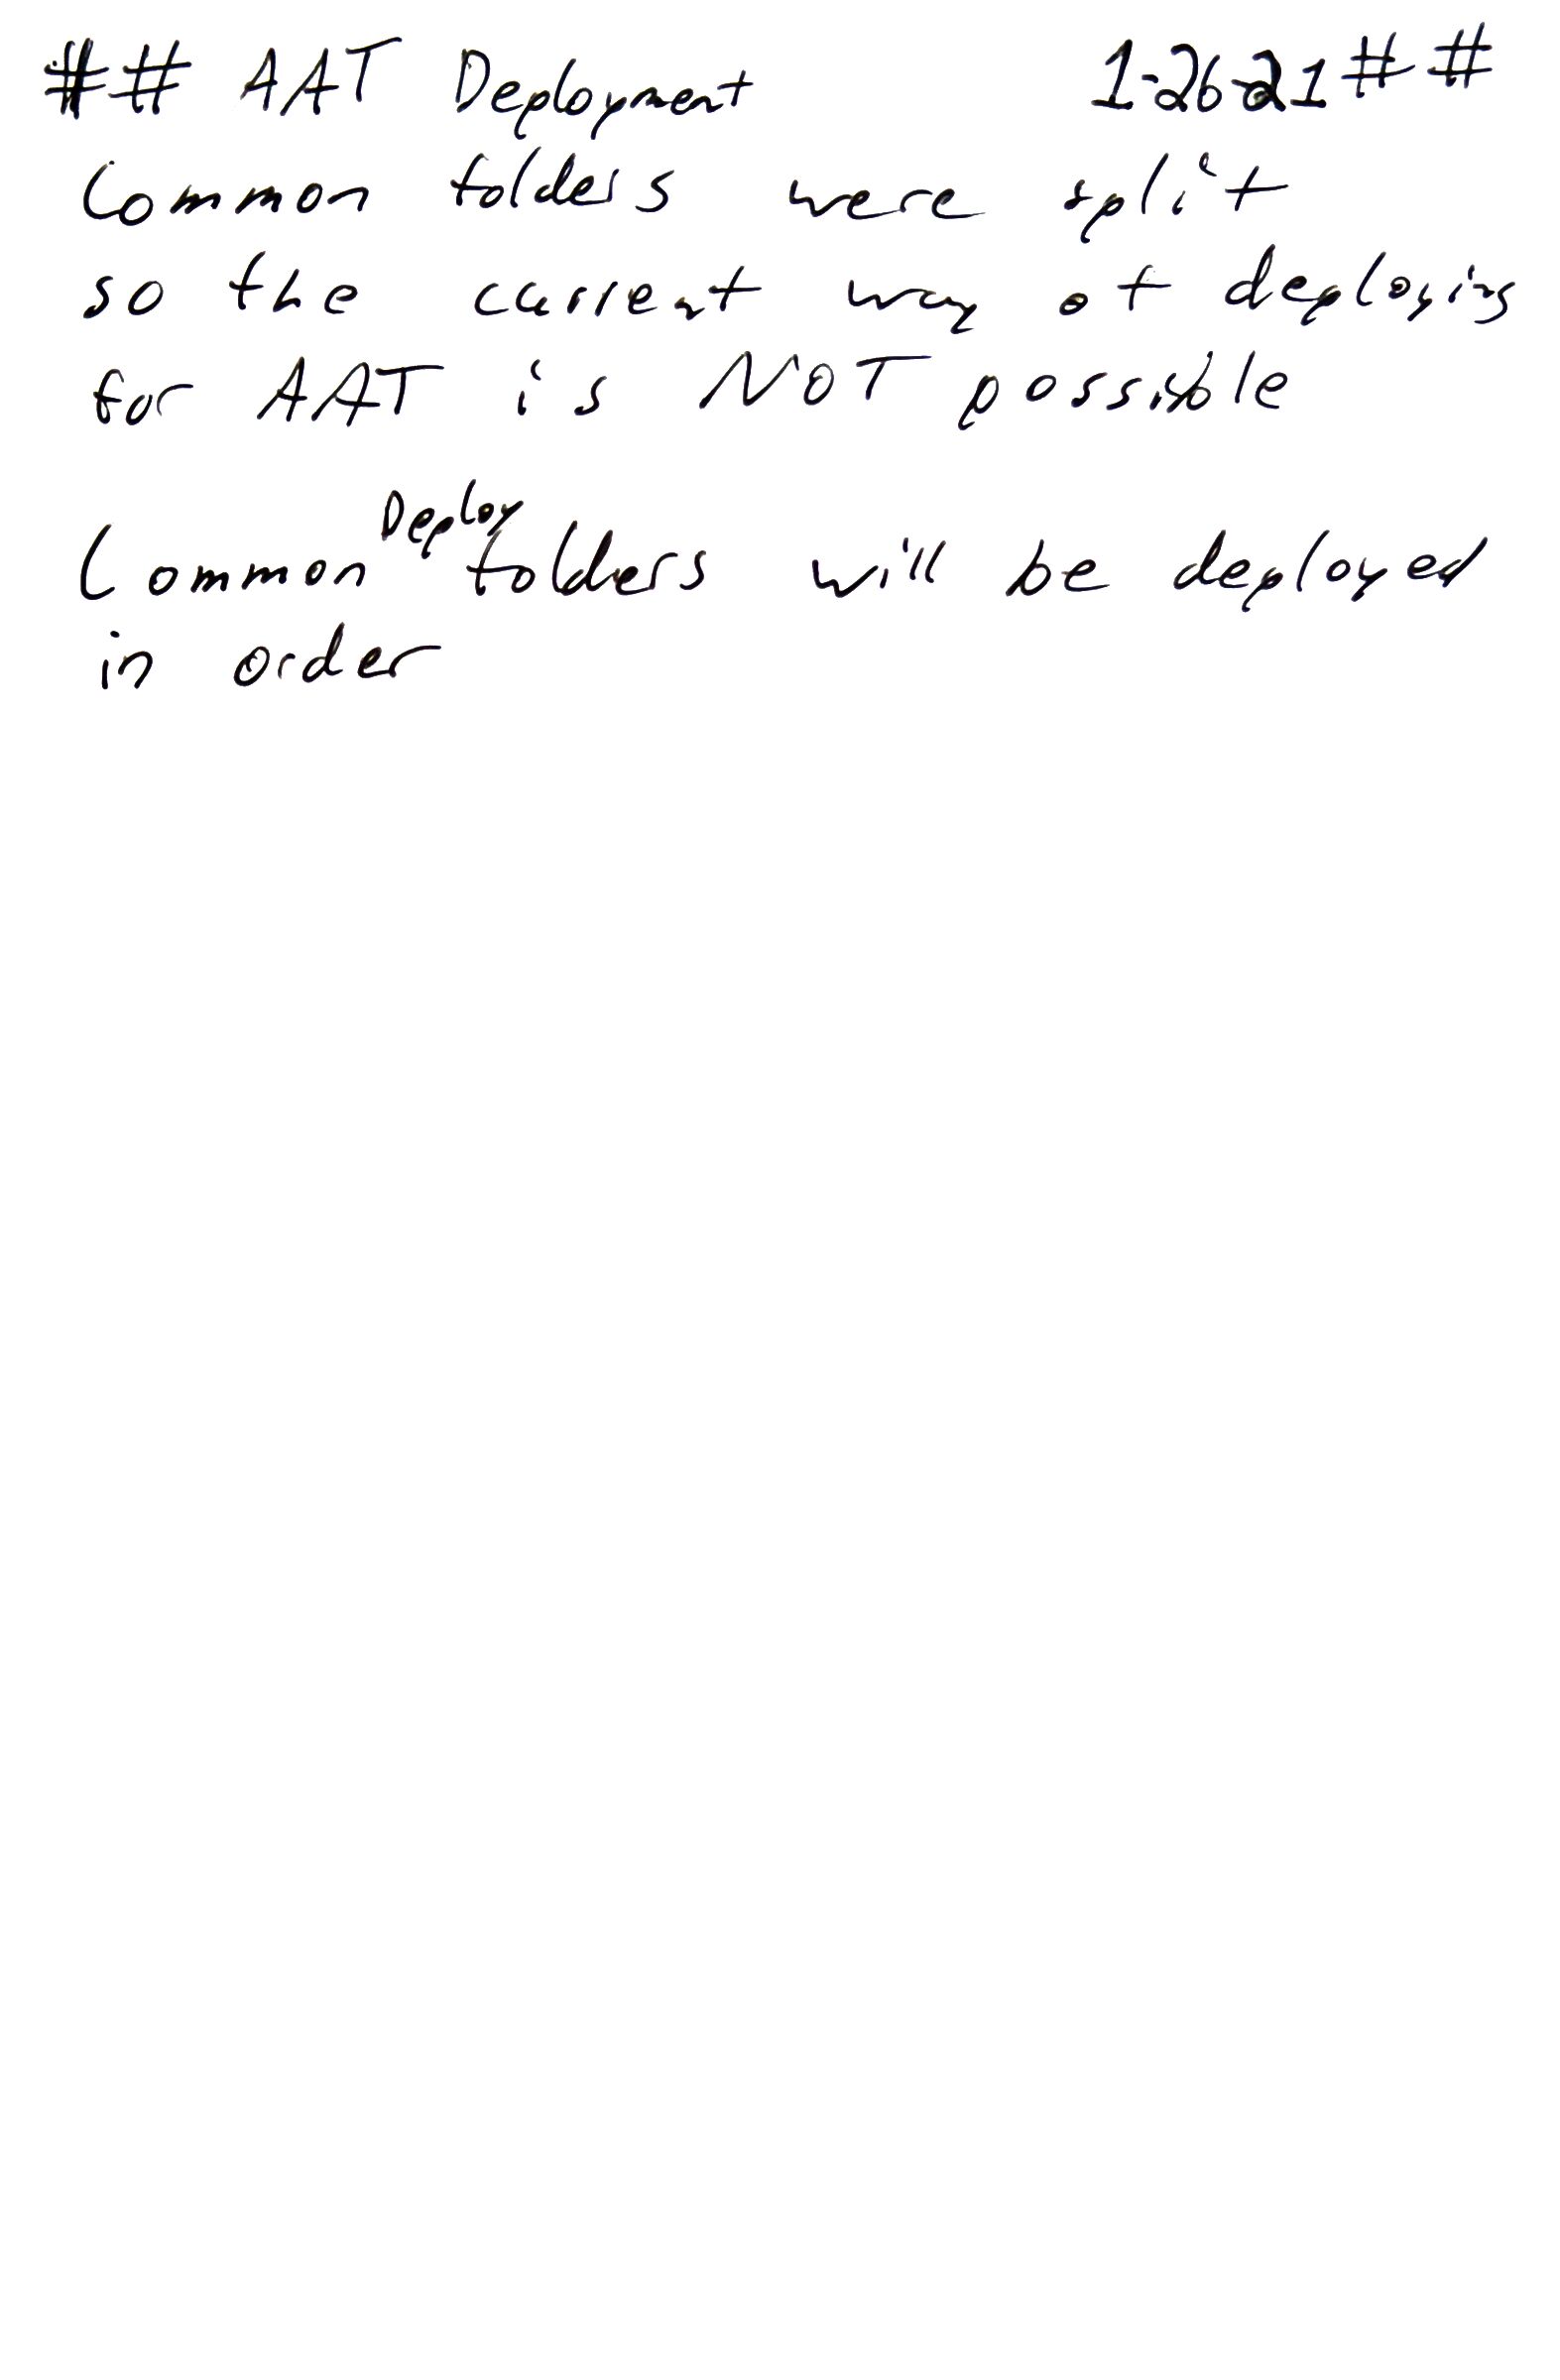 ## AAT Deployment 1-26-21 ##
Common folders were split
so the current way of deploying
for AAT is NOT possible
Common Deploy folders will be deployed
in order